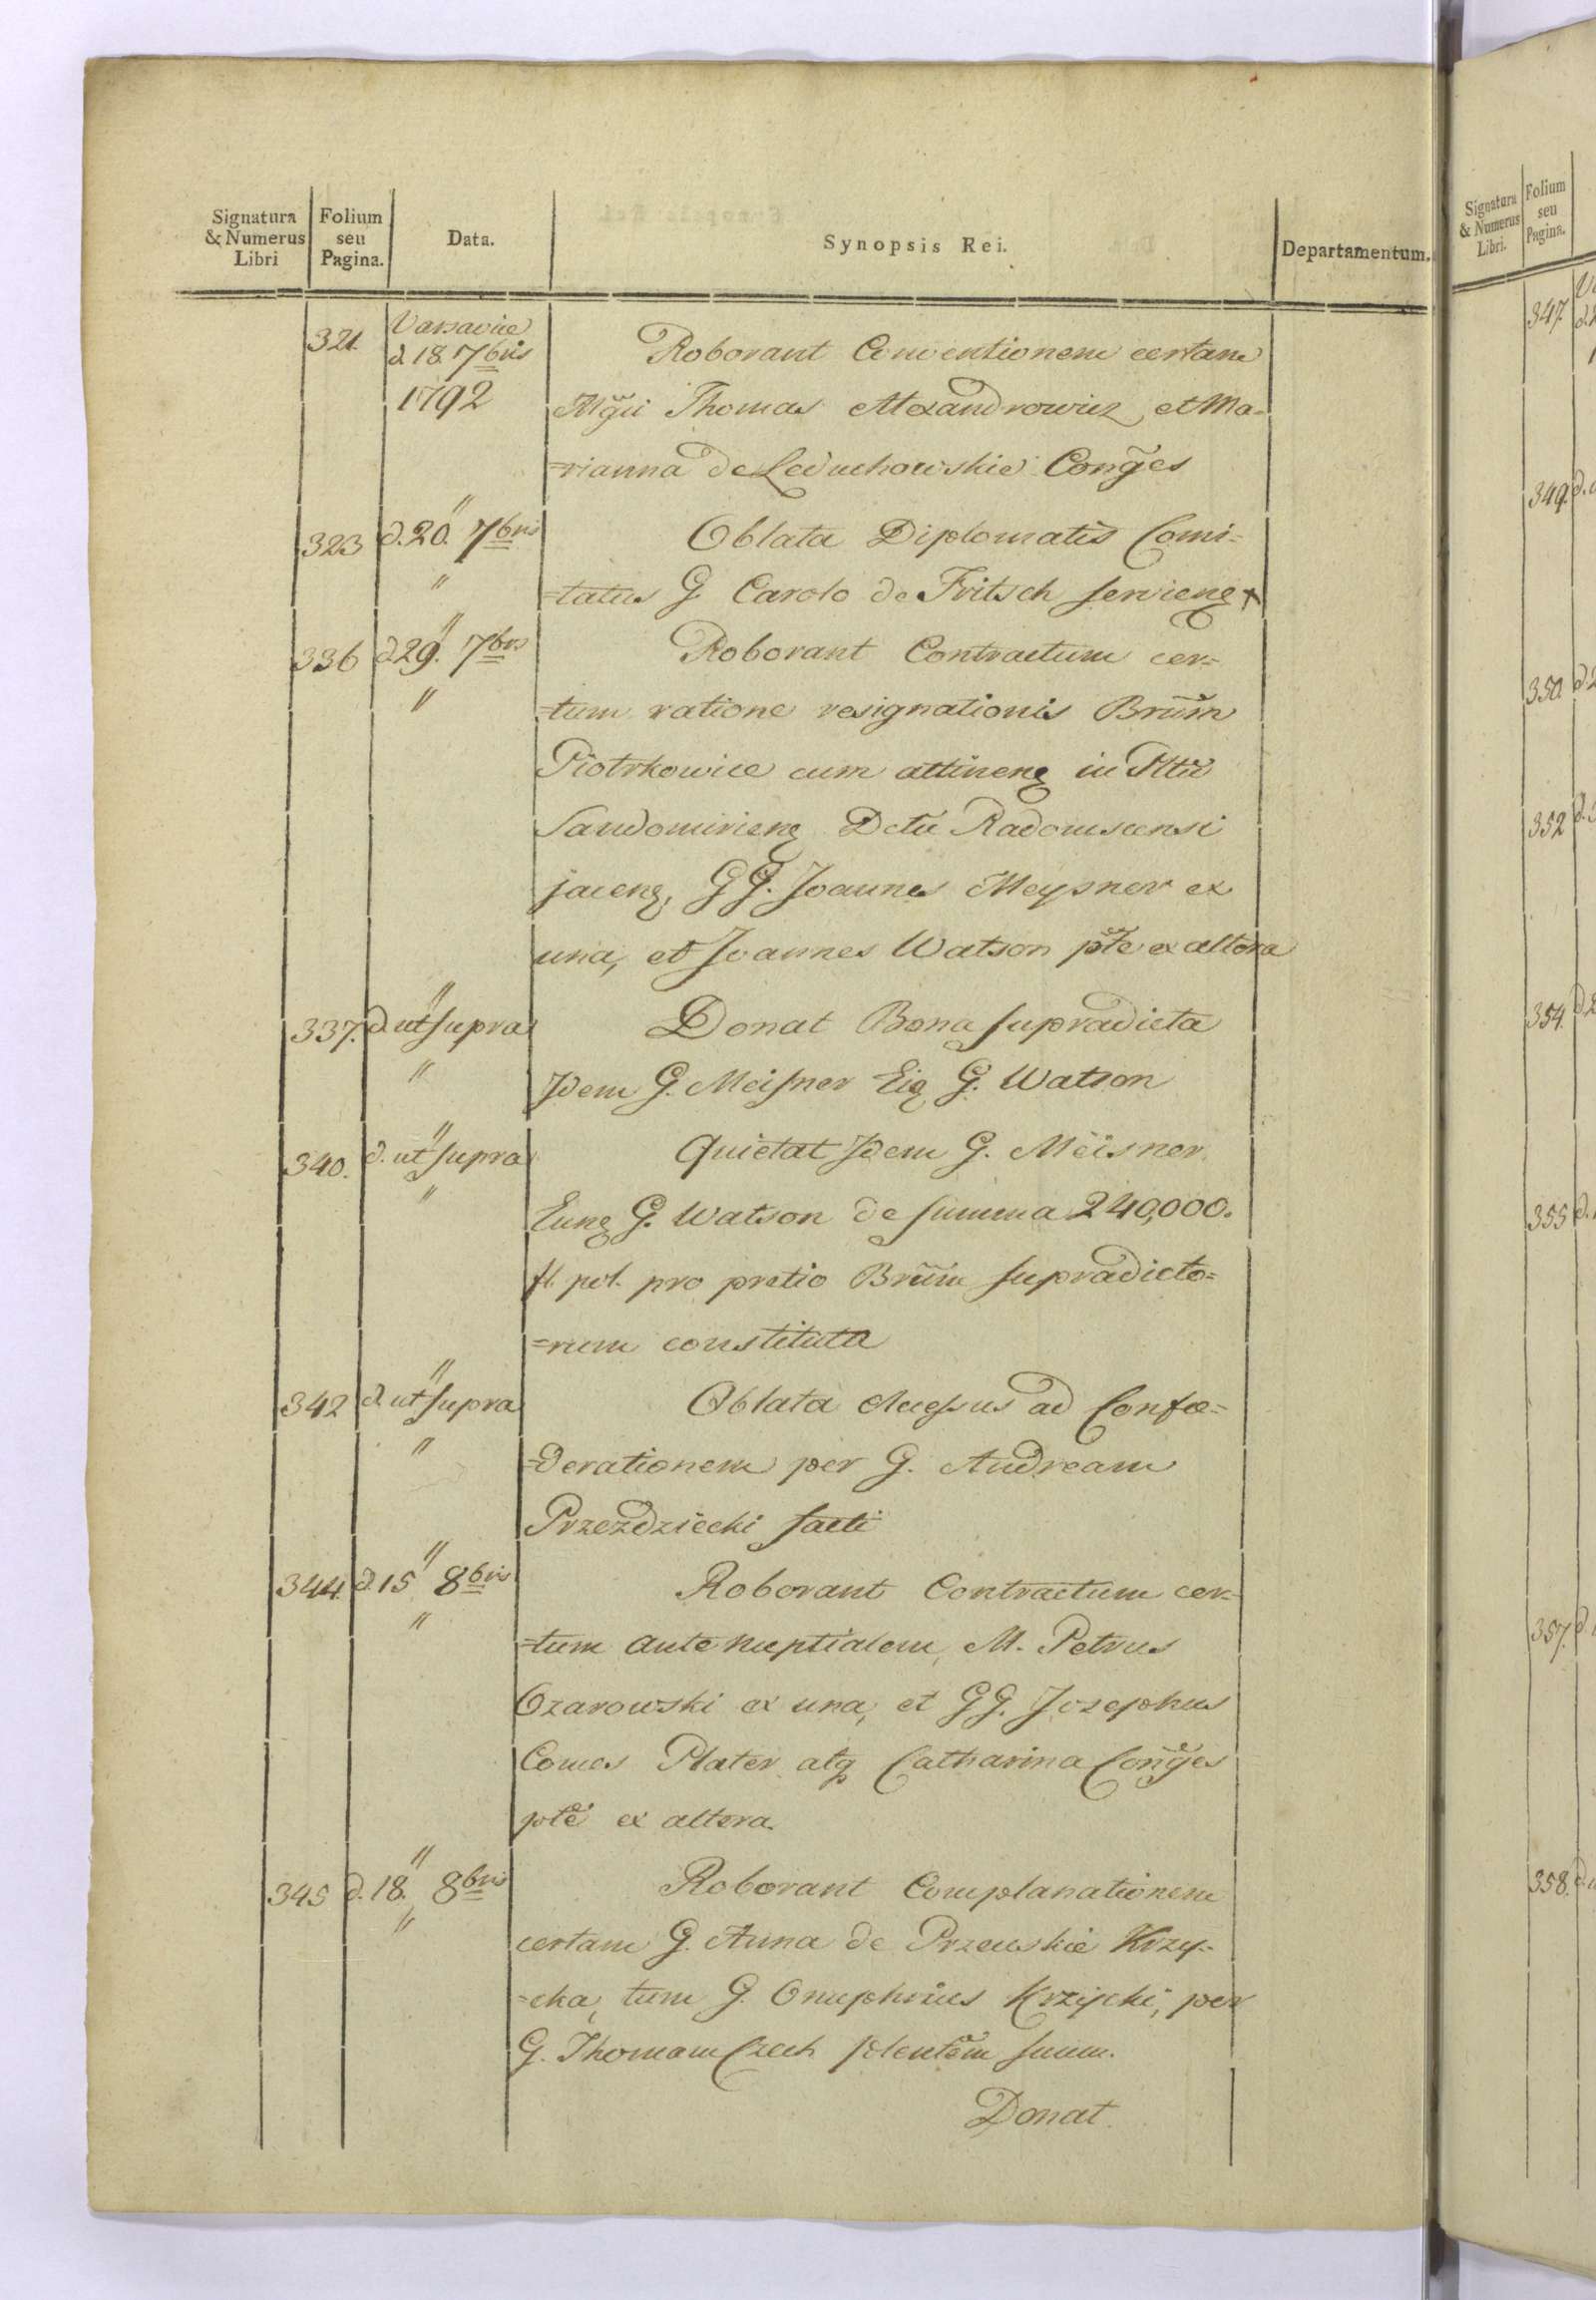 Signatura & Numerus Libri
Folium seu Pagina.
Data.
Synopsis Rei.
Departamentum.
321. Varsaviæ d. 18. 7bris 1792
Roborant Conventionem certam
Mg̃ci Thomas Alexandrowicz, et Ma=
=rianna de Leduchowskie Cong̃es
323 d. 20. 7bris "
Oblata Diplomatis Comi=
=tatus G. Carolo de Fritsch servieng
336 d. 29. 7bris "
Roborant Contractum cer=
=tum ratione resignationis Brum̃
Piotrkowice cum attineng in Pltũ
Sandomirieng Dctũ Radomscensi
jaceng, GG. Joannes Meysner ex
una, et Joannes Watson pt̃e ex altera
337. d. ut supra "
Donat Bona supradicta
Idem G. Meisner Eiq G. Watson
340. d. ut supra "
Quietat Idem G. Meisner
Eunq G. Watson de summa 240,000.
fl. pol. pro pretio Brum̃ supradicto=
=rum constituta
342 d. ut supra "
Oblata Accessus ad Confœ=
=derationem per G. Andream
Przezdziecki facti
344. d. 15 8bris "
Roborant Contractum cer=
=tum antenuptialem, M. Petrus
Ozarowski ex una, et GG. Josephus
Comes Plater atq Catharina Cong̃es
pt̃e ex altera.
345 d. 18. 8bris "
Roborant Complanationem
certam G. Anna de Przeuskie Krzy=
=cka, tum G. Onuphrius Krzycki, per
G. Thomam Czech plentem̃ suum.
Donat
Signatura & Numerus Libri.
Folium seu Pagina.
347.
349.
350.
352
354.
355
357.
358.